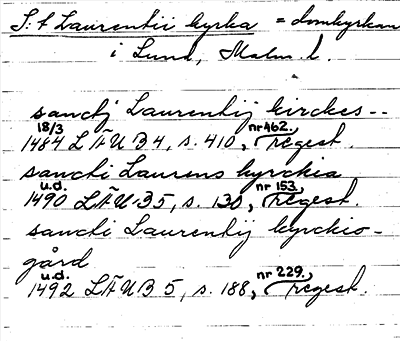 S:t Laurentii kyrka = domkyrkan
i Lund, Malm. l.
sanctj Laurentij kirckes--
18/3 nr 462.
1484 LÄUB 4, s. 410, regest.
sancti Laurens kyrckia
u.d. nr 153.
1490 LÄUB 5, s. 130, regest.
sancti Laurentij kyrckio-
gård
u.d. nr 229.
1492 LÄUB 5, s. 188, regest.